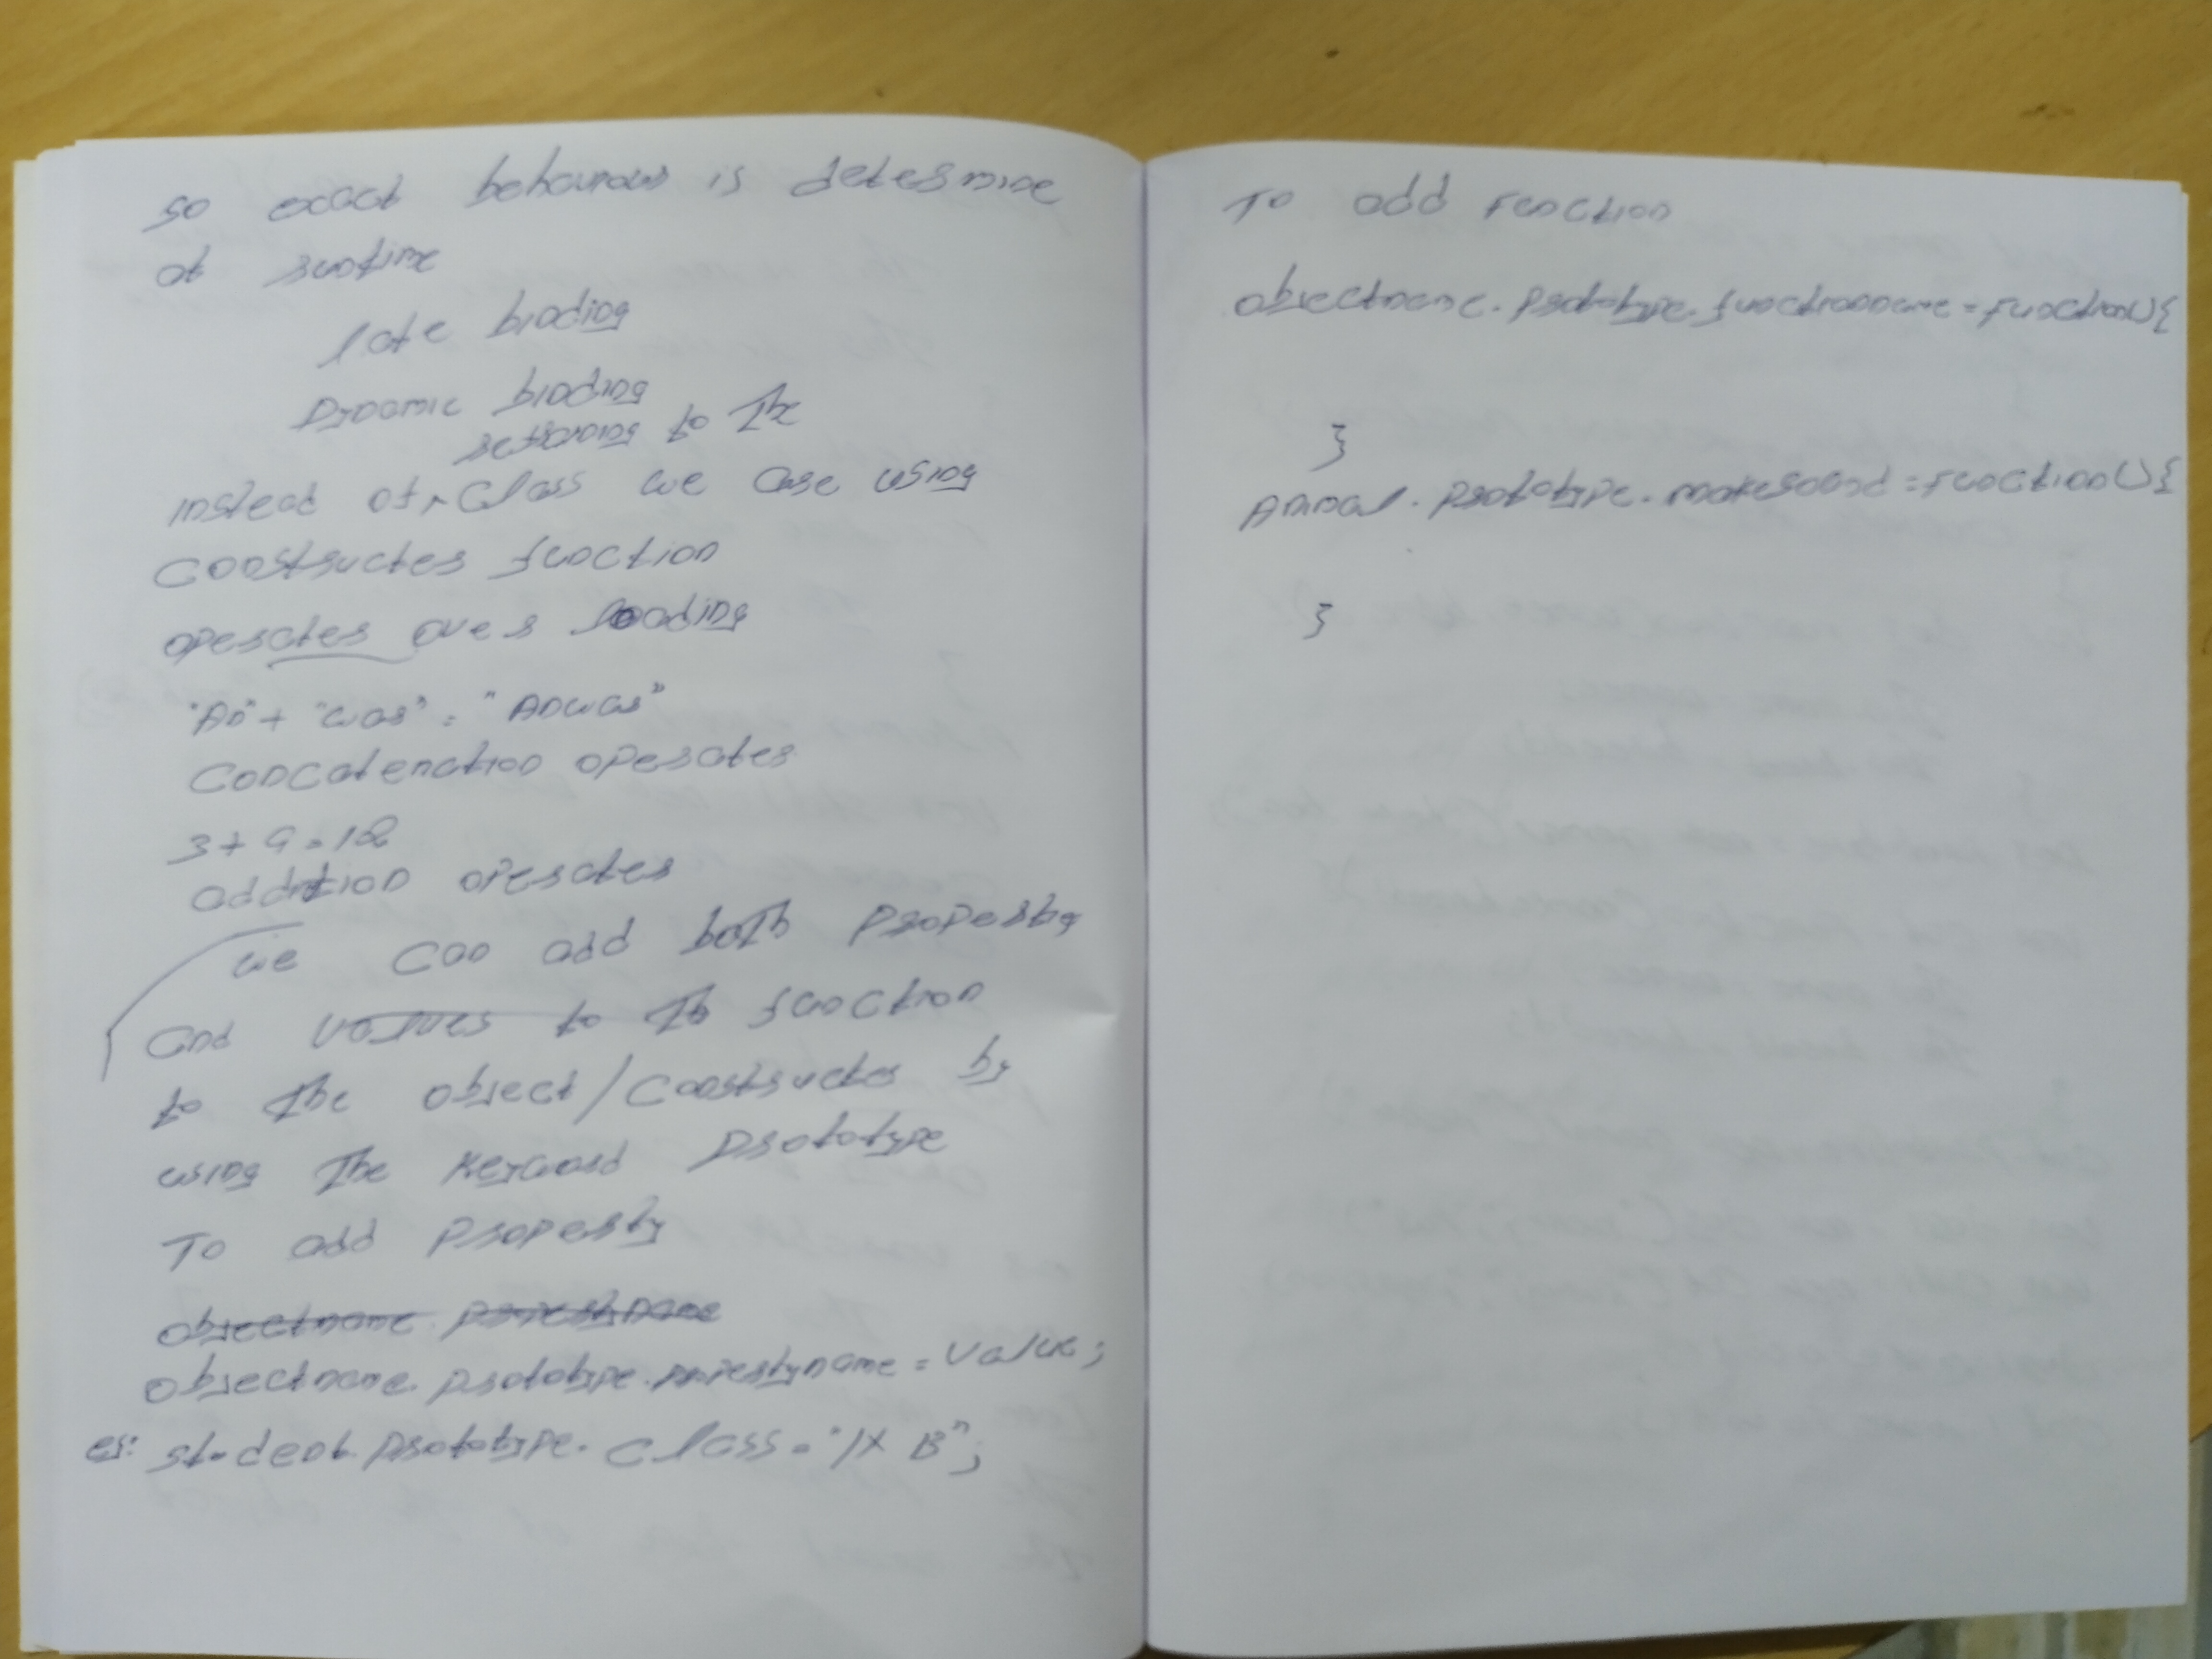 so exact behaviour is determine
at runtime
late binding
Dynamic binding
referring to the
instead of class we are using
constructer function
operater over loading
"An" + "war" = "Anwar"
concatenation operater
3 + 9 = 12
addition operater
we can add both property
and values to the function
to the object / constructer by
using the keyword prototype
To add property
objectname.propertyname
objectname.prototype.propertyname = value;
eg: student.prototype.class = "IX B";
To add function
objectname.prototype.functionname = function(){
}
Animal.prototype.makesound = function(){
}